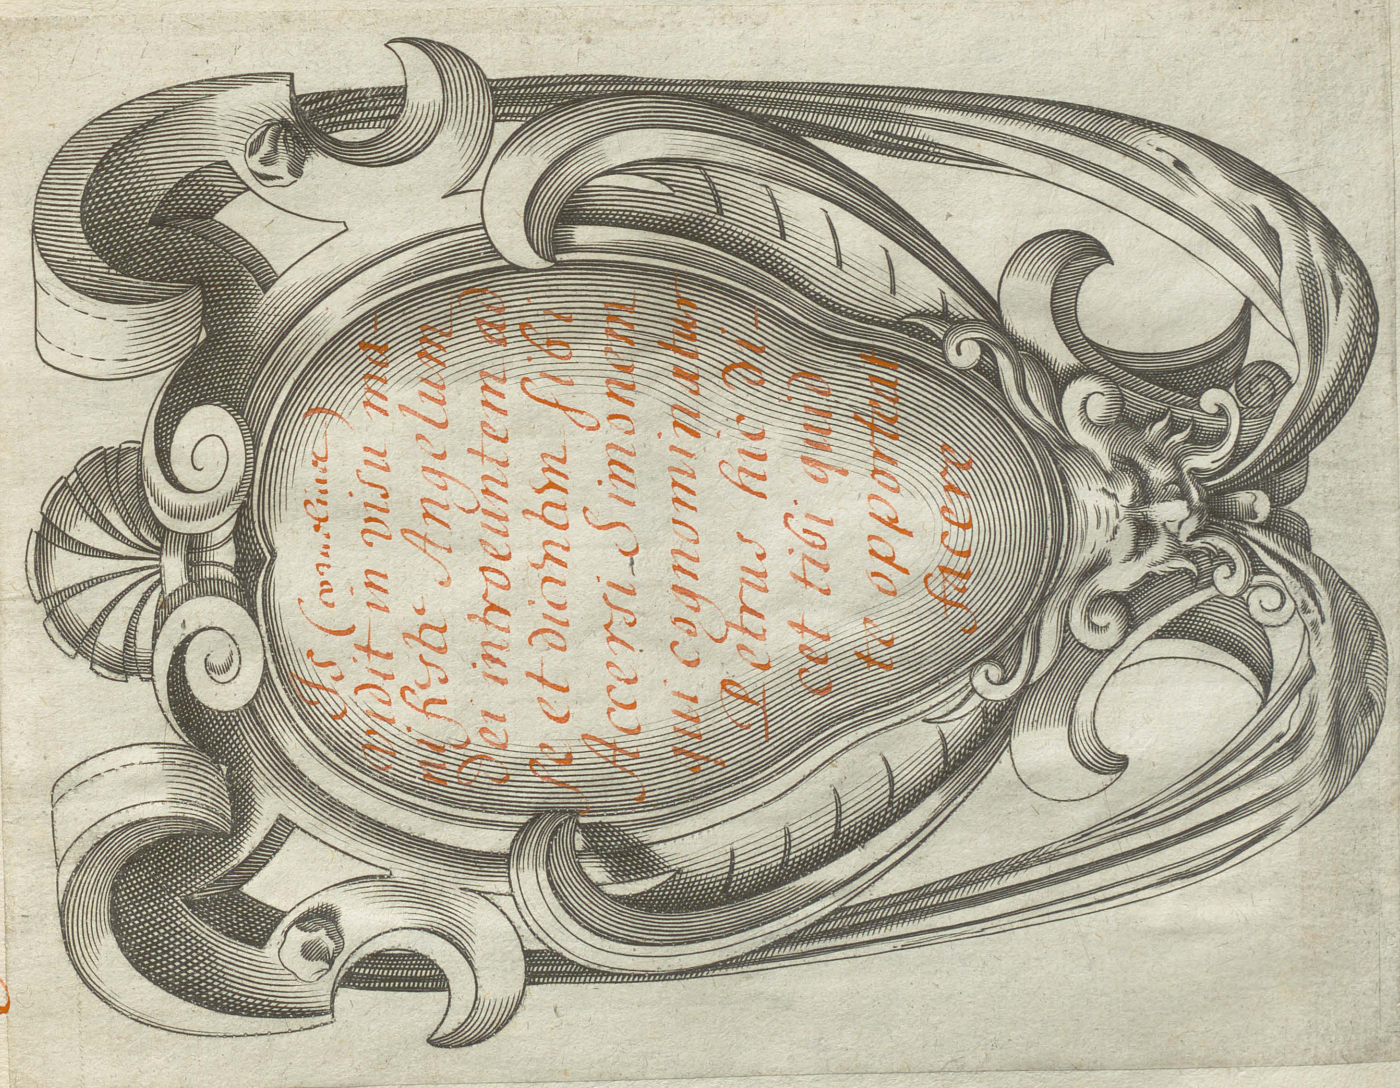 Is (Cornelius)
vidit in visu ma-
nifeste Angelum
Dei introeuntem ad
se et dicentem sibi
Accersi Simonem
qui cognominatur
Petrus hic di-
cet tibi quid
te opporteat
facere